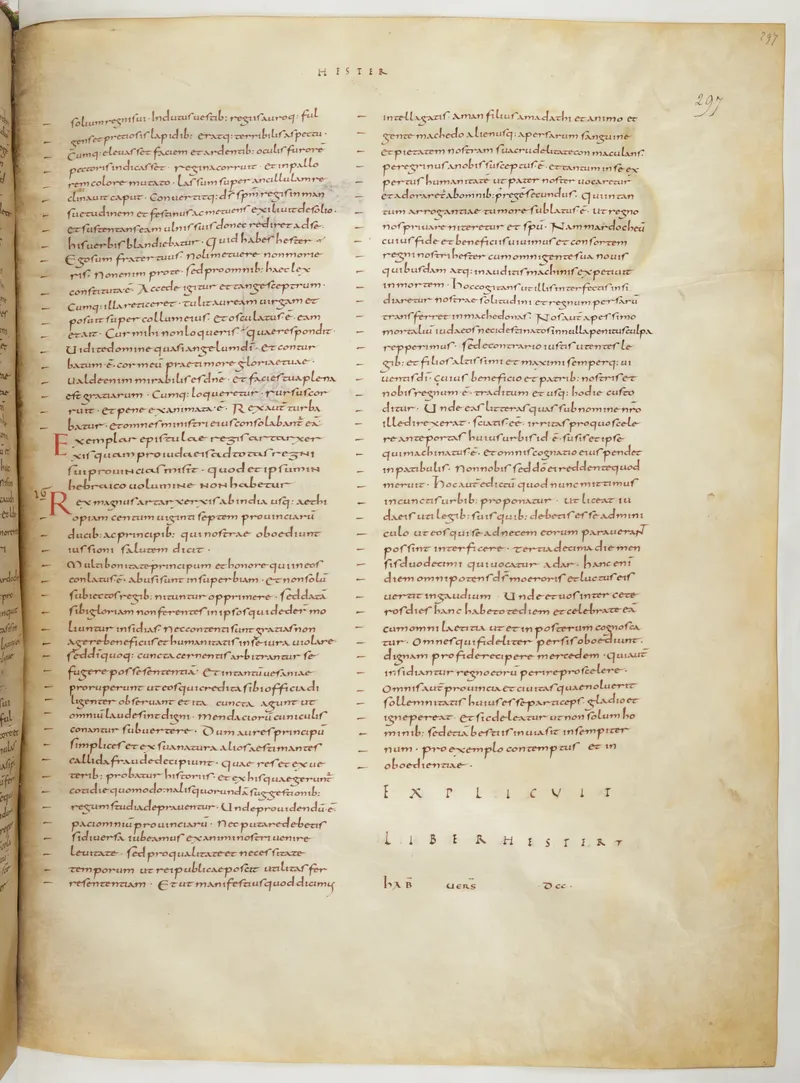 HESTER
297
297
solium regni sui · Indutus uestib: regiis auroq: ful
gens et pretiosis lapidib: eratq: terribilis aspectu ·
Cumq: eleuasset faciem et ardentib: oculis furorē
pectoris indicasset · regina corruit · et in pallo
rem colore mutato · Lassum super ancillulam re
clinauit caput · Conuertitq: d̄s sp̄m regis in man
suetudinem et festinus ac metuens exiliuit de solio ·
et sustentans eam ulnis suis donec rediret ad se ·
his uerbis blandiebatur · Quid habes hester
Ego sum frater tuus · Noli metuere non morie
ris · Non enim pro te · sed pro omnib: haec lex
constituta ē · Accede igitur et tange sceptrum ·
Cumq: illa reticeret · tulit auream uirgam et
posuit super collum eius · et osculatus ē · eam
et ait · Cur mihi non loqueris · quae respondit ·
Uidi te domine quasi angelum dī · et contur
batum ē · cor meū prae timore gloriae tuae ·
Ualde enim mirabilis es dn̄e · et facies tua plena
est gratiarum · Cumq: loqueretur · rursus cor
ruit · et pene exanimata ē · Rex aut̄ turba
batur · et omnes ministri eius consolabant̄ eā
Exemplar epistulae regis artarxer
xis quam pro iudaeis ad totas regni
sui prouincias misit · quod et ipsum in
hebraico uolumine non habetur
16
Rex magnus artarxerxis ab india usq: aethi
opiam centum uiginti septem prouinciarū
ducib: ac principib: qui nostrae oboediunt
iussioni salutem dicit ·
Multi bonitate principum et honore qui in eos
conlatus ē · abusi sunt in superbiam · et non solū
subiectos regib: nituntur opprimere · sed datā
sibi gloriam non ferentes in ipsos qui deder̄ mo
liuntur insidias · nec contenti sunt gratias non
agere beneficiis et humanitatis in se iura uiolare
sed dī quoq: cuncta cernentis arbitrantur se
fugere posse sententiā · et in tantū uesaniae
proruperunt ut eos qui credita sibi officia di
ligenter obseruant et ita cuncta agunt ut
omniū laude sint digni · mendaciorū cuniculis
conantur subuertere · Dum aures principū
simplices et ex sua natura alios aestimantes
callida fraude decipiunt · quae res et ex ue
terib: probatur historiis · et ex his quae gerunt̄
cotidie quomodo malis quorundā suggestionib:
regum studia deprauentur · Unde prouidendū ē ·
paci omniū prouinciarū · nec putare debetis
si diuersa iubeamus ex animi nostri uenire
leuitate · sed pro qualitate et necessitate
temporum ut rei publicae poscit utilitas fer
re sententiam · Et ut manifestius quod dicimus
intellagatis aman filius amadathi et animo et
gente machedo alienusq: a persarum sanguine
et pietatem nostram sua crudelitate con maculans ·
peregrinus a nobis susceptus ē · et tantum in se ex
pertus humanitatē ut pater noster uocaretur
et adoraret̄ ab omnib: p̄ regē secundus · qui in tan
tum arrogantiae tumore sublatus ē · ut regno
nos priuare niteretur et spū · Nam mardocheū
cuius fide et beneficiis uiuimus et consortem
regni nostri hester cum omni gente sua nouis
quibusdam atq: inauditis machinis expetiuit
in mortem · hoc cogitans ut illis interfectis insi
diaretur nostrae solitudini et regnum persarū
transferret in machedonas · Nos aut̄ a pessimo
mortaliū iudaeos neci destinatos in nulla penitus culpa
repperimus · sed e contrario iustis utentes le
gib: et filios altissimi et maximi semperq: ui
uentis dī · cuius beneficio et patrib: nostris et
nobis regnum ē · traditum et usq: hodie custo
ditur · Unde eas litteras quas sub nomine nr̄o
ille direxerat · sciatis ē · irritas pro quo scele
re ante portas huius urbis id ē · susis et ipse
qui machinatus ē · et omnis cognatio eius pendet
in patibulis · non nobis sed dō ei reddente quod
meruit · hoc aut̄ edictū quod nunc mittimus
in cunctis urbib: proponatur · ut liceat iu
daeis uti legib: suis quib: debetis esse admini
culo ut eos qui se ad necem eorum parauerant
possint interficere · tertia decima die men
sis duodecimi qui uocatur adar · hanc enī
diem omnipotens d̄s moeroris et luctus eis
uertit in gaudium · Unde et uos inter cete
ros dies hanc habetote diem et celebrate eā
cum omni laetitia ut et in posterum cognosca
tur · Omnes qui fideliter persis oboediunt ·
dignam pro fide recipere mercedem · qui aut̄
insidiantur regno eorū perire pro scelere ·
Omnis aut̄ prouincia et ciuitas quae noluerit
sollemnitatis huius esse particeps gladio et
igne pereat · et sic deleatur ut non solum ho
minib: sed etiā bestiis inuia sit in sempiter
num · pro exemplo contemptus et in
oboedientiae ·
EXPLICUIT
LIBER HESTER
hAB̄ UERS̄ · DCC ·